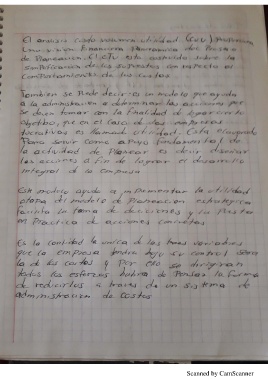 El analisis costo volumen utilidad (CVU) proporciona
una vision financiera panoramica del proceso
de planeacion. El CVU esta construido sobre la
simplificacion de los supuestos con respecto al
comportamiento de los costos

Tambien se puede decir es un modelo que ayuda
a la administracion a determinar las acciones que
se deben tomar con la finalidad de lograr cierto
objetivo que en el caso de las empresas
lucrativas es llamado utilidad. Esta
para servir como apoyo fundamental de
la actividad de planear es decir diseñar
las acciones a fin de lograr el desarrollo
integral de la empresa

Este modelo ayuda a implementar la utilidad
del modelo de planeacion estrategica
la toma de decisiones y la puesta
en practica de acciones concretas

Es la cantidad la unica de las tres variables
que la empresa tendra bajo su control
la de los costos y por ello se dirigiran
todos los esfuerzos habra de pensar la forma
de reducirlos a traves de un sistema de
administracion de costos
Scanned by CamScanner